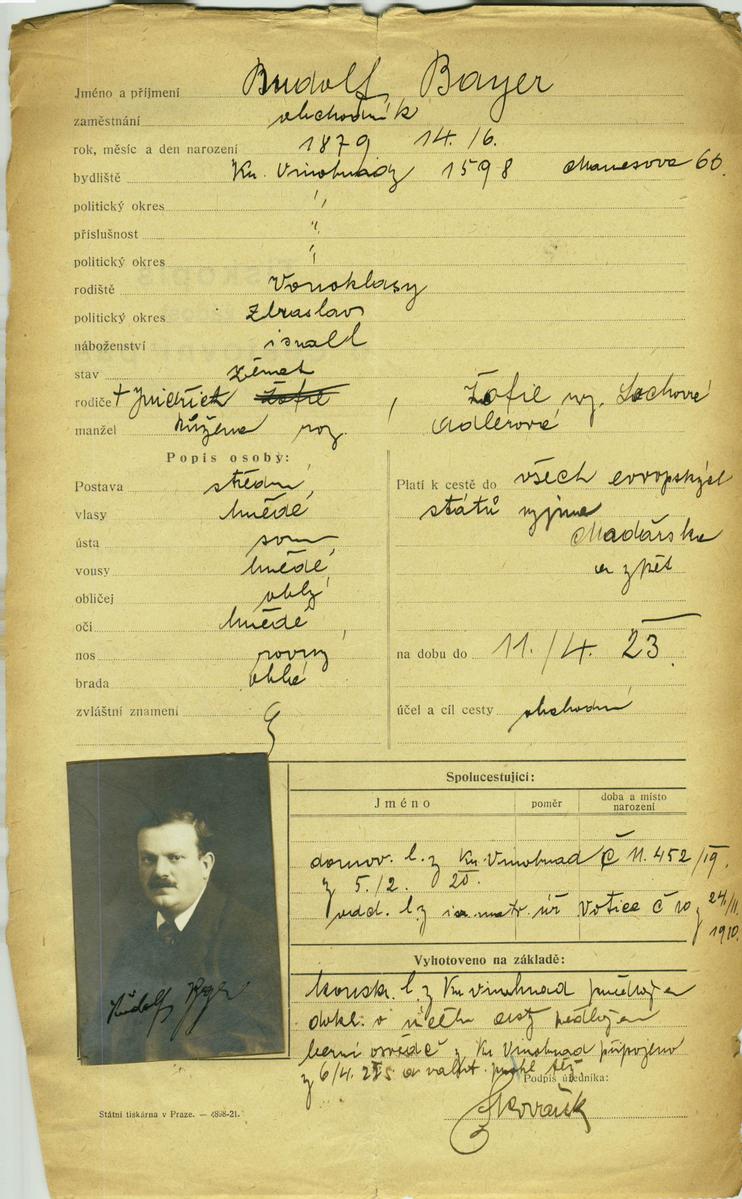 Jméno a příjmení Rudolf Bayer
zaměstnání obchodník
rok, měsíc a den narození 1879 14./6.
bydliště Kr. Vinohrady 1598 Manesova 60.
politický okres "
příslušnost "
politický okres "
rodiště Vonoklasy
politický okres Zbraslav
náboženství israel
stav ženat
rodiče + Jindřich Žofie, Žofie roz. Lechové
manžel Růžena roz. Adlerové
Popis osoby:
Postava střední,
vlasy hnědé
ústa
vousy hnědé,
obličej oblý,
oči hnědé
nos rovný,
brada oblá
zvláštní znamení
Platí k cestě do všech evropských
států vyjma
Maďarska
a zpět
na dobu do 11./4. 23.
účel a cíl cesty obchodní
Spolucestující:
Jméno poměr doba a místo narození
domov. l. z Kr. Vinohrad č 11.452/IV.
z 5./2. 20.
odd. l. z matr. úř Votice č 10 z 24./11. 1910.
Vyhotoveno na základě:
konsk. l. z Kr Vinohrad
dokl. o účelu cesty předložen
berní z Kr Vinohrad připojeno
z 6/4. a
Podpis úředníka:
Kovařík
Rudolf Bayer
Státní tiskárna v Praze. — 4898-21.